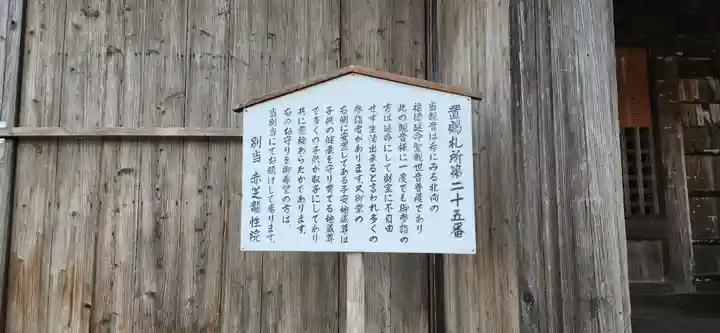 置賜札所第二十五番
当観音は希にみる北向の
福徳延命聖観世音菩薩であり
此の観音様に一度でも御参詣の
方は延命にして財宝に不自由
せず生活出来ると言われ多くの
参詣者があります。又御堂の
右側に安置してある子安地蔵尊は
子供の健康を守り育てる地蔵尊
で多くの子供が取子にしてあり
共に霊験あらたかであります。
右のお守りを御希望の方は、
当別当にてお領けして居ります。
別当 赤芝龍性院